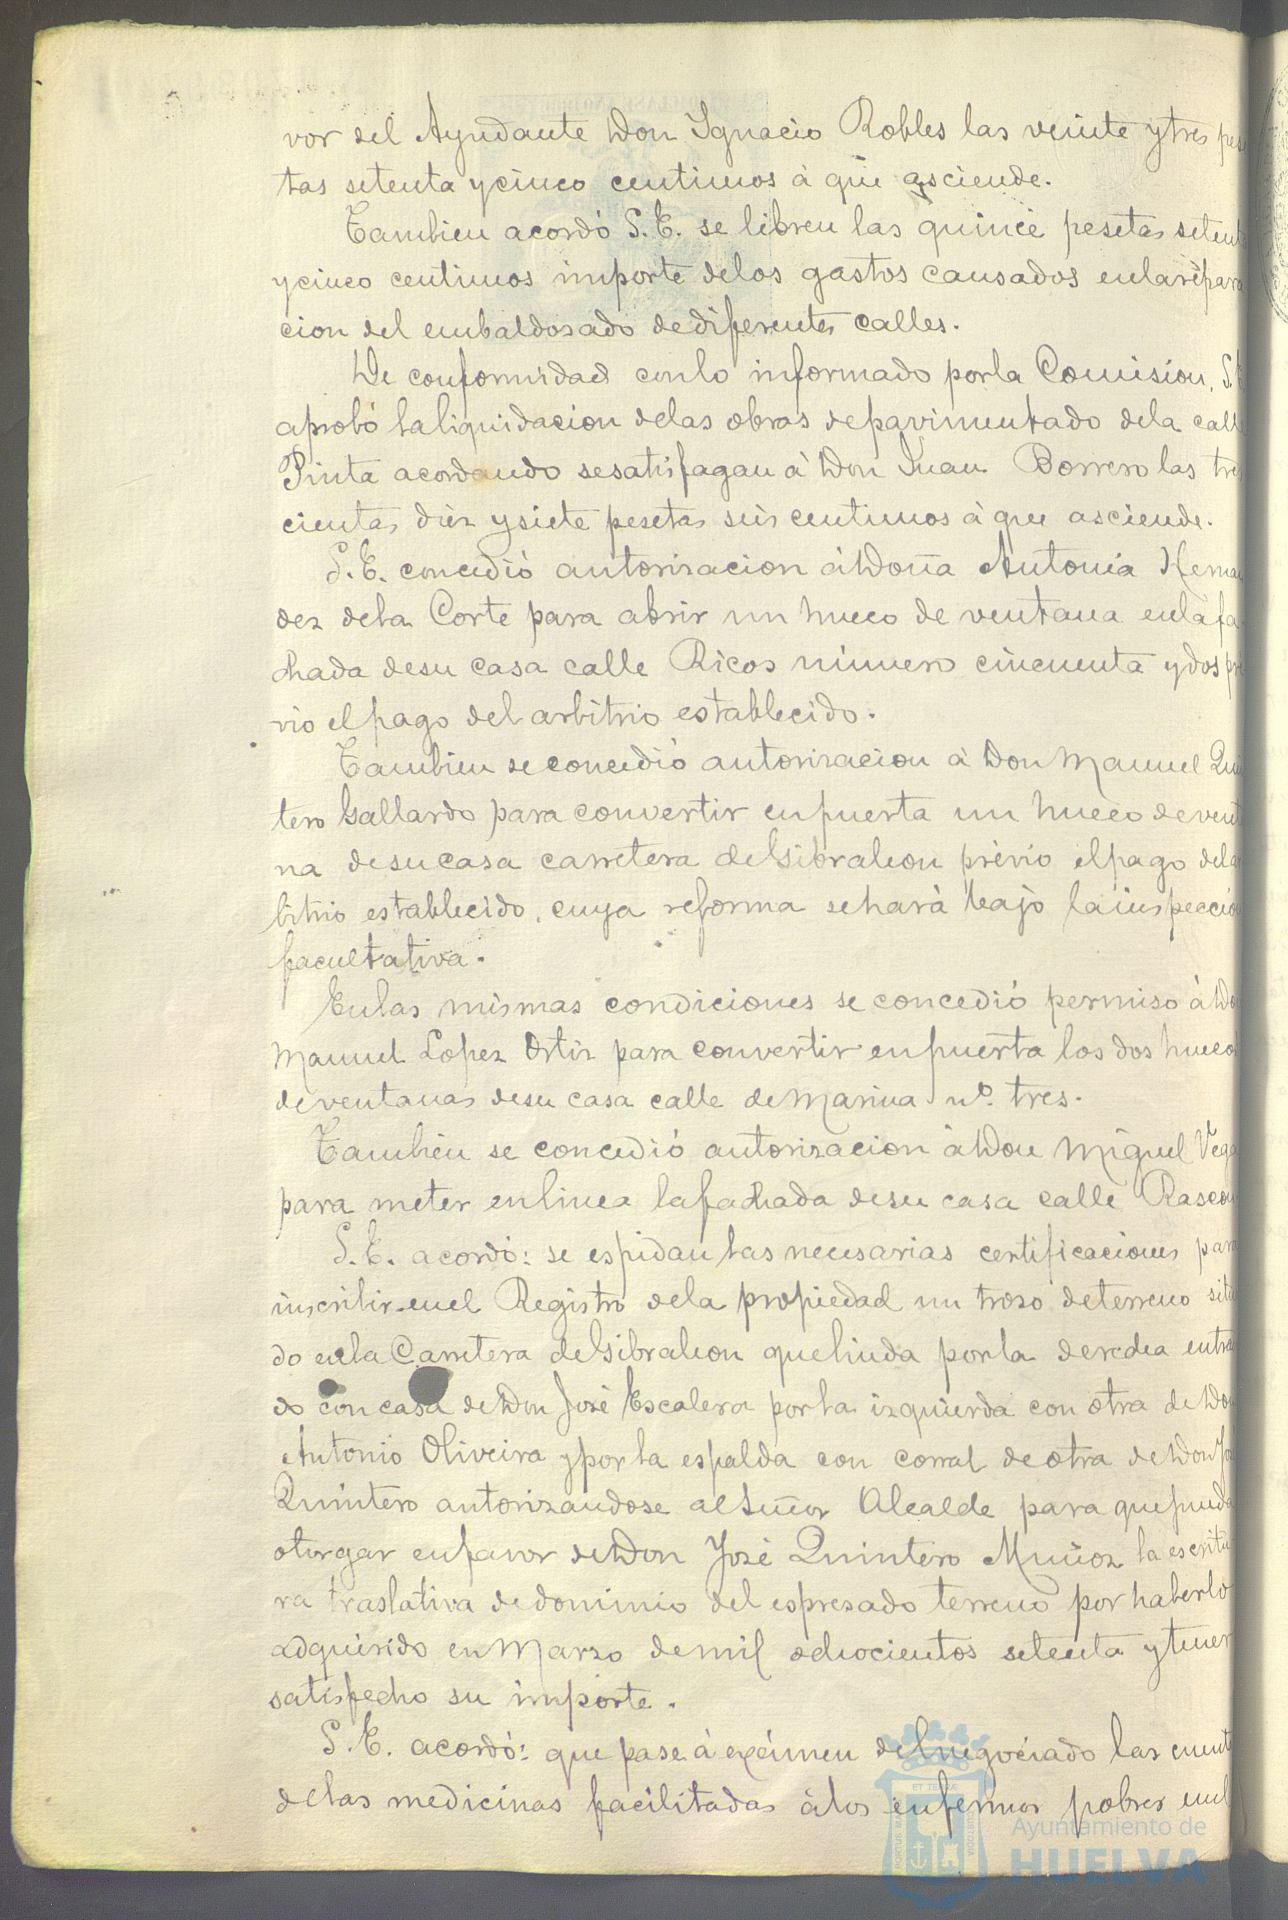 vor del Ayudante Don Ignacio Robles las veinte y tres pese
tas setenta y cinco centimos á que asciende.
Tambien acordó S. E. se libren las quince pesetas setent
y cinco centimos importe delos gastos causados enlarepara
cion del embaldosado dediferentes calles.
De conformidad conlo informado porla Comision, S. E
aprobó laliquidacion delas obras depavimentado dela call
Pinta acordando sesatisfagan á Don Juan Borrero las tres
cientas diez ysiete pesetas seis centimos á que asciende.
S. E. concedió autorizacion áDoña Antonia Hernan
dez dela Corte para abrir un hueco de ventana enlafa
chada desu casa calle Ricos número cincuenta ydos pré
vio elpago del arbitrio establecido.
Tambien se concedió autorizacion á Don Manuel Quin
tero Gallardo para convertir enpuerta un hueco devent
na desucasa carretera deGibraleon prévio elpago delar
bitrio establecido, cuya reforma sehará bajo lainspeccion
facultativa.
Enlas mismas condiciones se concedió permiso áDon
Manuel Lopez Ortiz para convertir enpuerta los dos huecos
deventanas desu casa calle deMarina nº. tres.
Tambien se concedió autorizacion áDon Miguel Vega
para meter enlinea lafachada desu casa calle Rascon
S. E. acordó: se espidan las necesarias certificaciones para
inscribir enel Registro dela propiedad un trozo deterreno situa
do enla Carretera deGibraleon quelinda porla derecha entran
do con casa deDon José Escalera porla izquierda con otra deDon
Antonio Oliveira yporla espalda con corral deotra deDon José
Quintero autorizandose alSeñor Alcalde para quepueda
otorgar enfavor deDon José Quintero Muñoz la escritu
ra traslativa dedominio del espresado terreno por haberlo
adquirido enMarzo demil ochocientos setenta ytener
satisfecho su importe.
S. E. acordó: que pase á exámen delnegociado las cuent
delas medicinas facilitadas álos enfermos pobres enel
ET TERRÆ
PORTUS MARIS
CUSTODIA
Ayuntamiento de
HUELVA